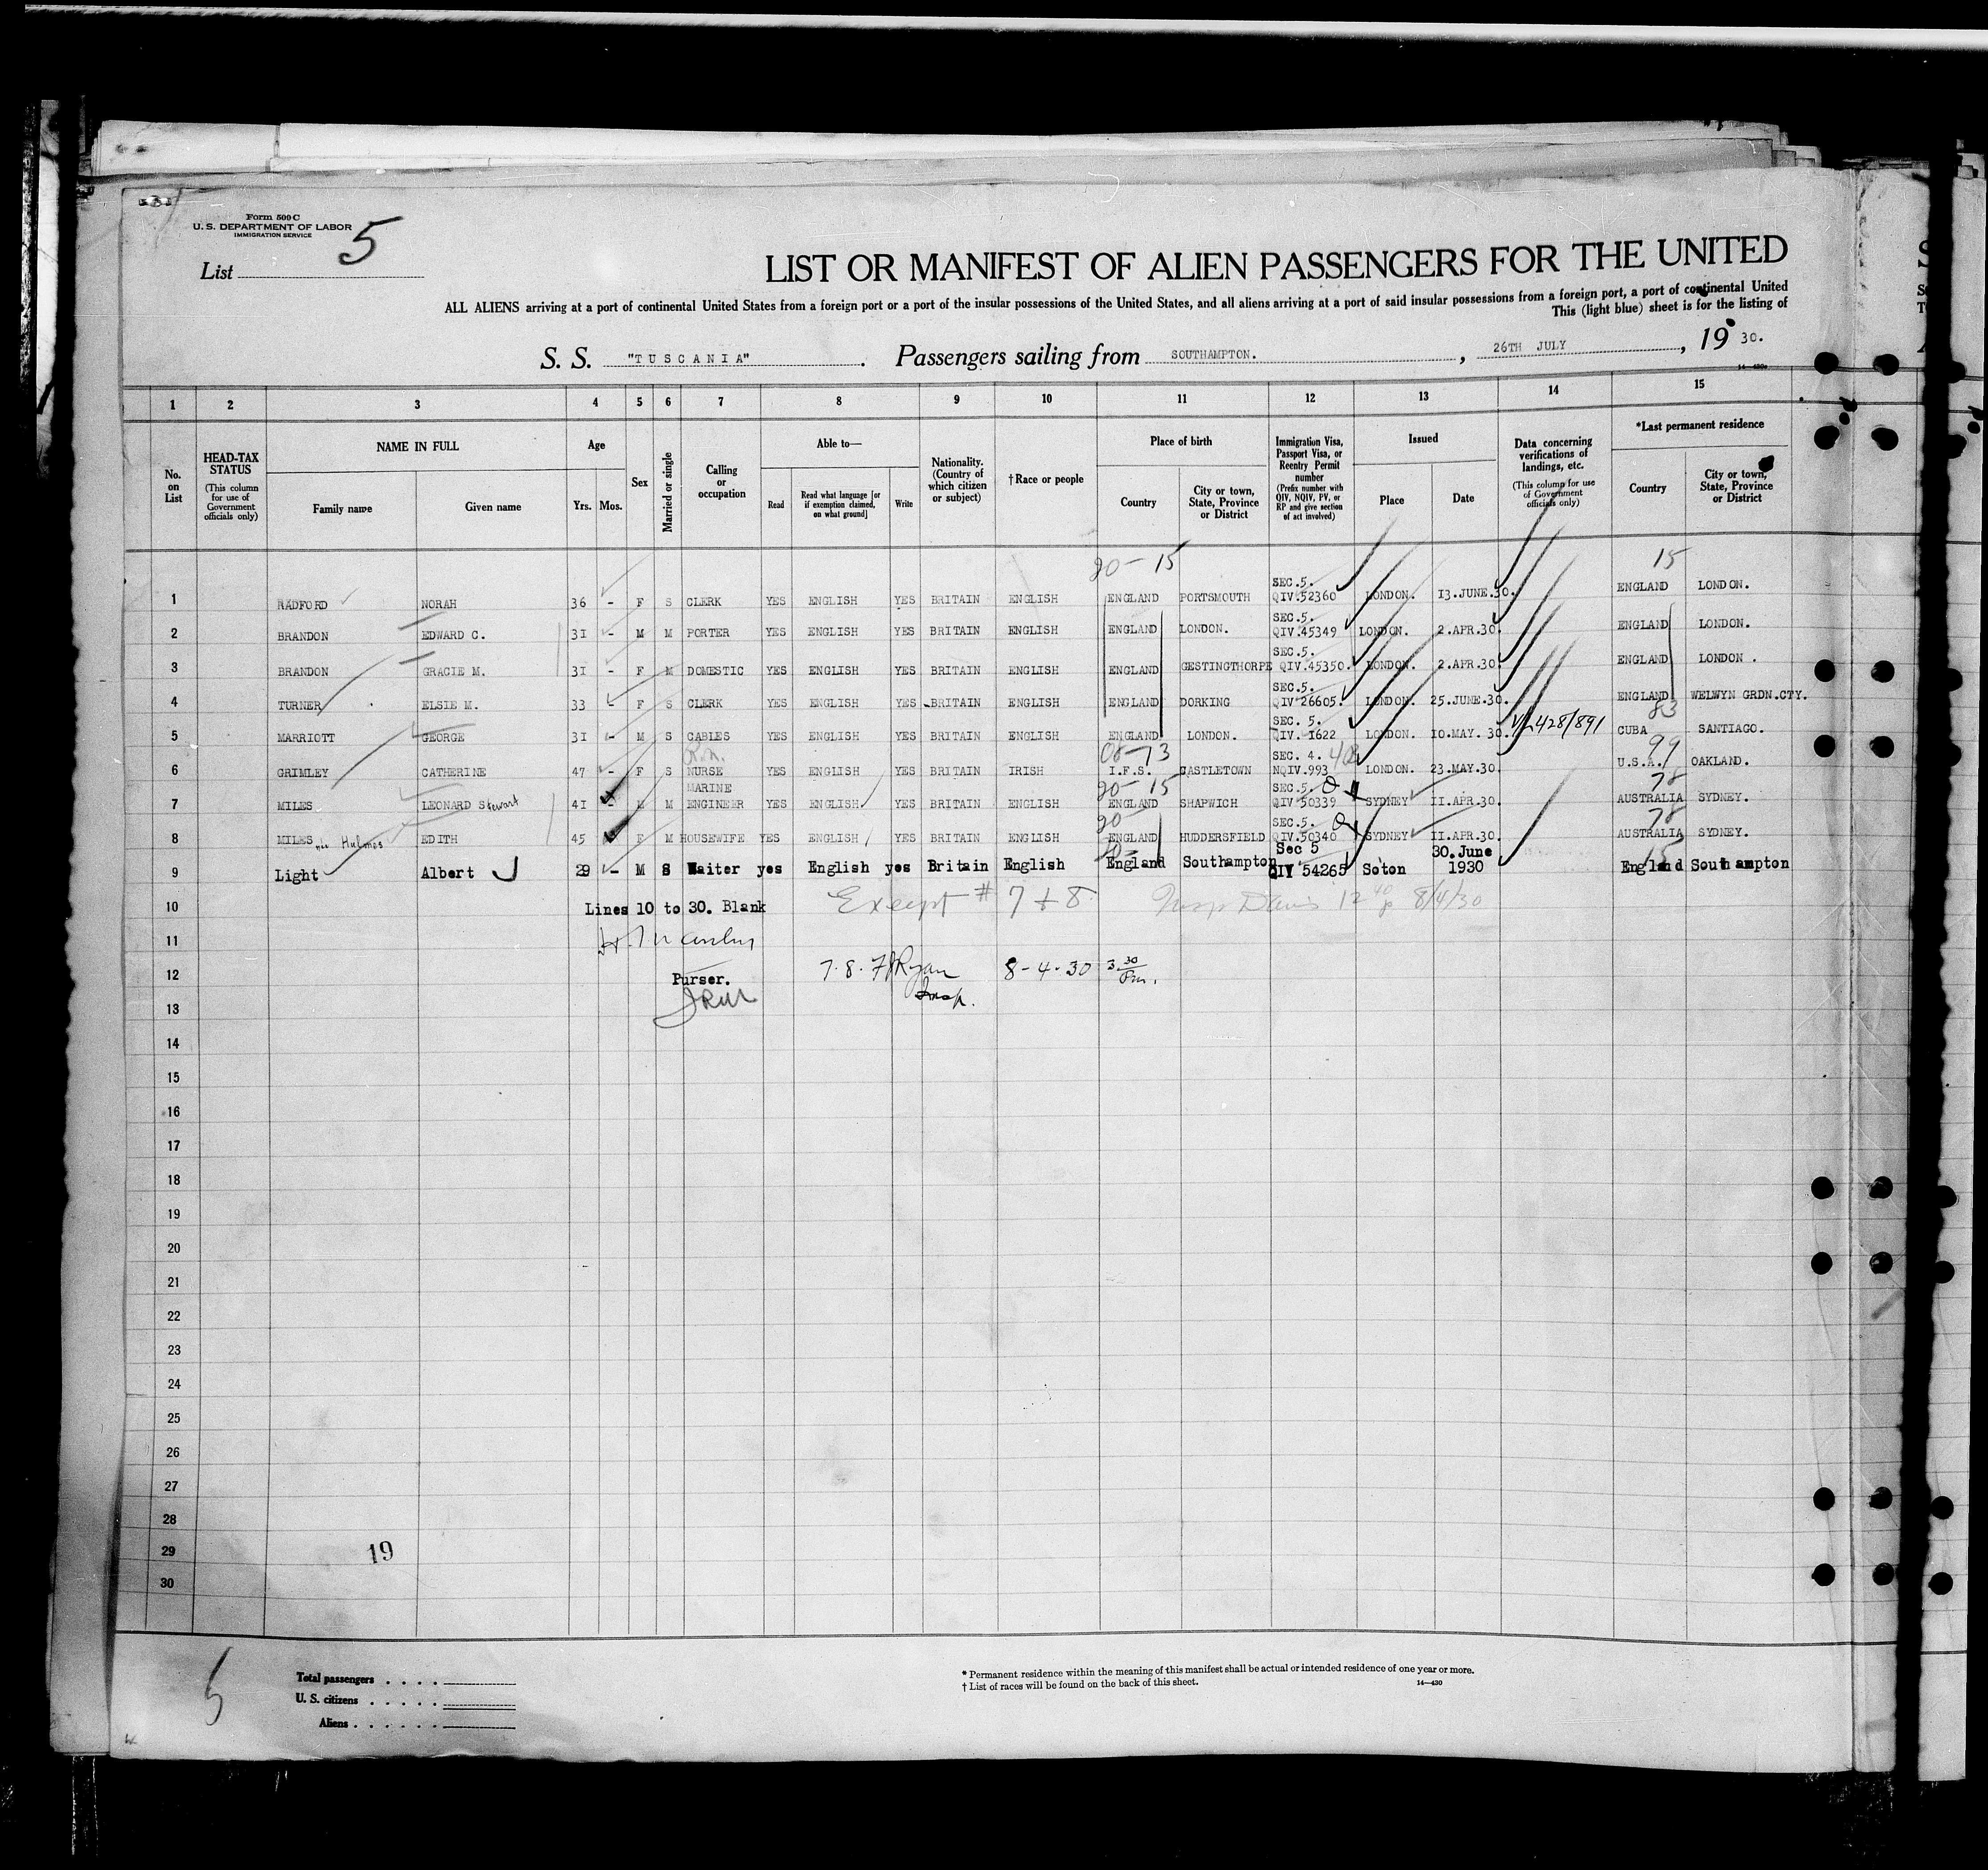 Form 500 C
U. S. DEPARTMENT OF LABOR
IMMIGRATION SERVICE
List 5
LIST OR MANIFEST OF ALIEN PASSENGERS FOR THE UNITED
ALL ALIENS arriving at a port of continental United States from a foreign port or a port of the insular possessions of the United States, and all aliens arriving at a port of said insular possessions from a foreign port, a port of continental United
This (light blue) sheet is for the listing of
S. S. "TUSCANIA". Passengers sailing from SOUTHAMPTON. , 26TH JULY , 19 30.
14—430
1 2 3 4 5 6 7 8 9 10 11 12 13 14 15
No. on List
HEAD-TAX STATUS (This column for use of Government officials only)
NAME IN FULL
Family name Given name
Age
Yrs. Mos.
Sex
Married or single
Calling or occupation
Able to—
Read Read what language [or if exemption claimed, on what ground] Write
Nationality. (Country of which citizen or subject)
†Race or people
Place of birth
Country City or town, State, Province or District
Immigration Visa, Passport Visa, or Reentry Permit number (Prefix number with QIV, NQIV, PV, or RP and give section of act involved)
Issued
Place Date
Data concerning verifications of landings, etc. (This column for use of Government officials only)
*Last permanent residence
Country City or town, State, Province or District
20-15 15
1 RADFORD NORAH 36 - F S CLERK YES ENGLISH YES BRITAIN ENGLISH ENGLAND PORTSMOUTH SEC.5. QIV.52360 LONDON. 13.JUNE.30. ENGLAND LONDON.
2 BRANDON EDWARD C. 31 - M M PORTER YES ENGLISH YES BRITAIN ENGLISH ENGLAND LONDON. SEC.5. QIV.45349 LONDON. 2.APR.30. ENGLAND LONDON.
3 BRANDON GRACIE M. 31 - F M DOMESTIC YES ENGLISH YES BRITAIN ENGLISH ENGLAND GESTINGTHORPE SEC.5. QIV.45350. LONDON. 2.APR.30. ENGLAND LONDON .
4 TURNER ELSIE M. 33 - F S CLERK YES ENGLISH YES BRITAIN ENGLISH ENGLAND DORKING SEC.5. QIV 26605. LONDON. 25.JUNE.30. ENGLAND WELWYN GRDN.CTY.
83
5 MARRIOTT GEORGE 31 - M S CABLES YES ENGLISH YES BRITAIN ENGLISH ENGLAND LONDON. SEC. 5. QIV. 1622 LONDON. 10.MAY. 30. VL428/891 CUBA SANTIAGO.
R.N. 08-73 99
6 GRIMLEY CATHERINE 47 - F S NURSE YES ENGLISH YES BRITAIN IRISH I.F.S. CASTLETOWN SEC. 4. NQIV.993 LONDON. 23.MAY.30. U.S.A. OAKLAND.
20-15 78
7 MILES LEONARD Stewart 41 - M M MARINE ENGINEER YES ENGLISH YES BRITAIN ENGLISH ENGLAND SHAPWICH SEC.5. QIV.50339 SYDNEY 11.APR.30. AUSTRALIA SYDNEY.
20- 78
8 MILES nee Hulmes EDITH 45 F M HOUSEWIFE YES ENGLISH YES BRITAIN ENGLISH ENGLAND HUDDERSFIELD SEC.5. QIV.50340 SYDNEY 11.APR.30. AUSTRALIA SYDNEY.
20- 15
9 Light Albert 29 - M S Waiter yes English yes Britain English England Southampton Sec 5 QIV 54265 Soton 30.June 1930 England Southampton
10 Lines 10 to 30. Blank Except # 7 + 8 Insp Davis 12 40 p 8/4/30
11
12 Purser. 7.8. Ryan Insp. 8-4-30 3 30 Pm.
13 JRM
14
15
16
17
18
19
20
21
22
23
24
25
26
27
28
29 19
30
5
Total passengers . . . .
U. S. citizens . . . . .
Aliens . . . . . .
* Permanent residence within the meaning of this manifest shall be actual or intended residence of one year or more.
† List of races will be found on the back of this sheet.
14—430